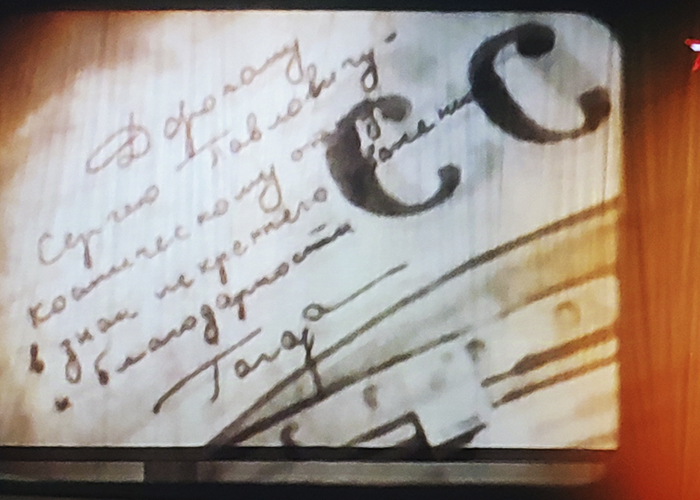 Дорогому
Сергею Павловичу -
космическому отцу
в знак искреннего уважения
и благодарности
Гагар
С С